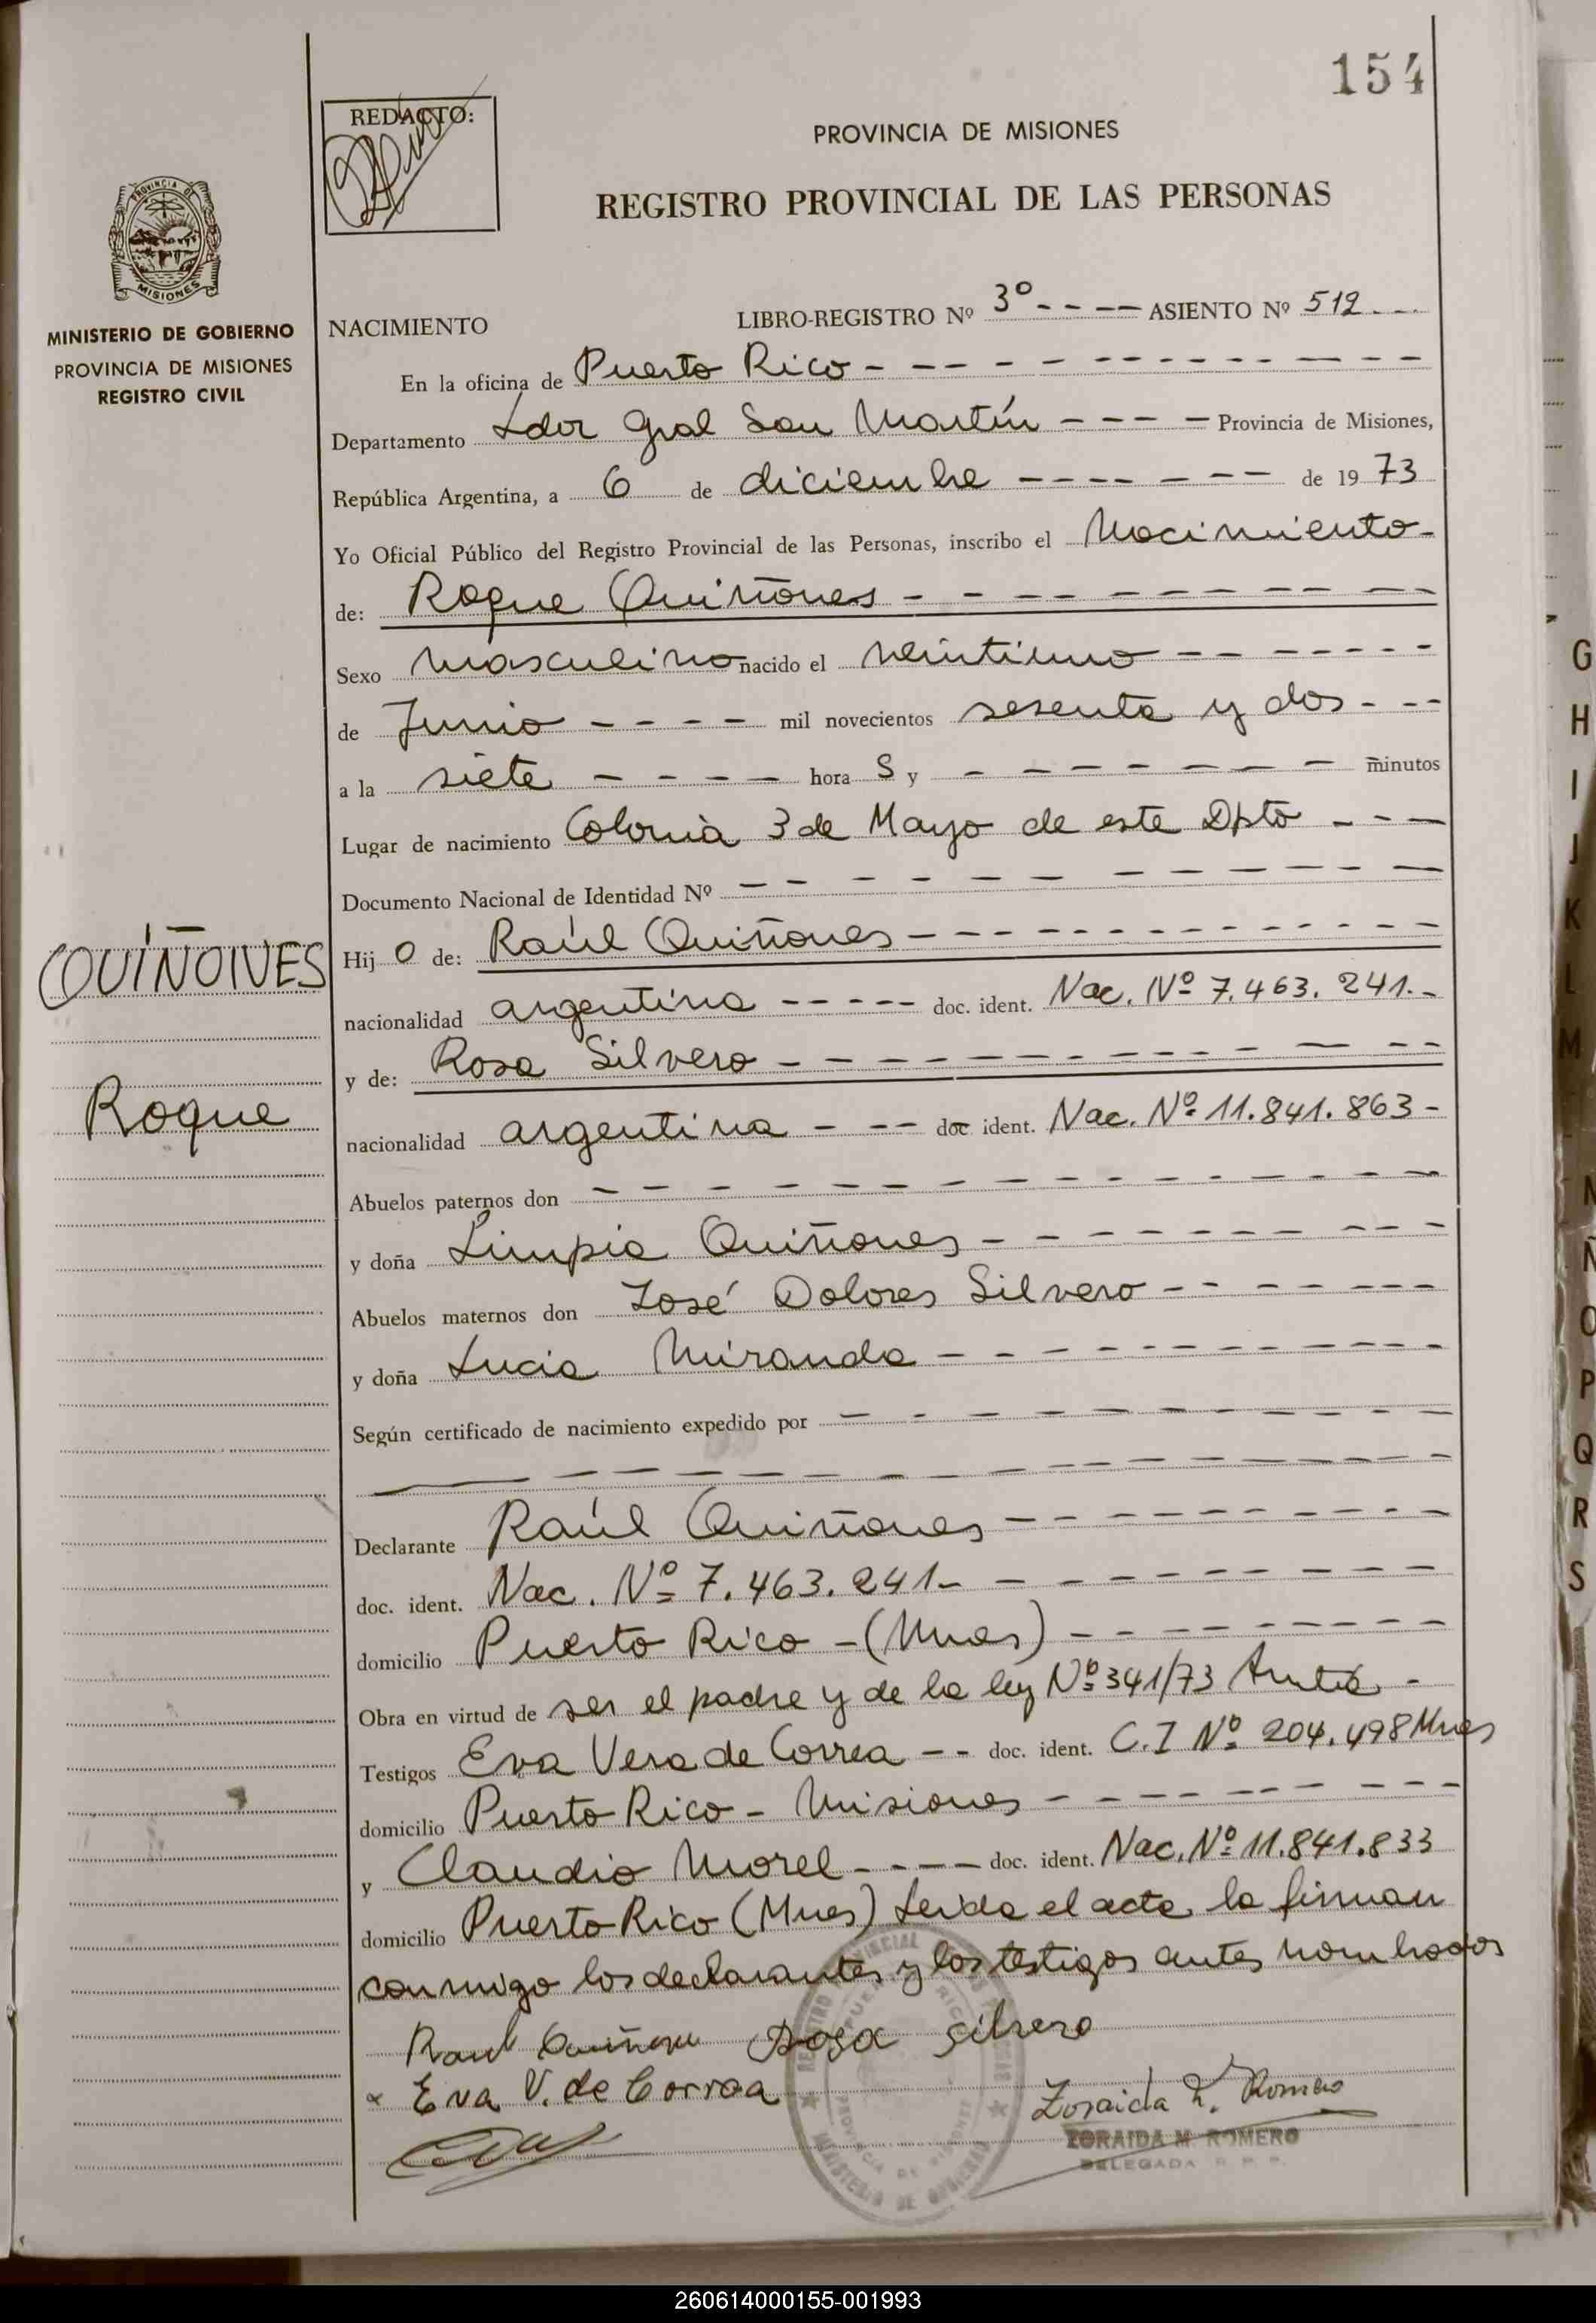 154
REDACTO:
PROVINCIA DE MISIONES
REGISTRO PROVINCIAL DE LAS PERSONAS
PROVINCIA DE
MISIONES
MINISTERIO DE GOBIERNO
PROVINCIA DE MISIONES
REGISTRO CIVIL
NACIMIENTO LIBRO-REGISTRO Nº 3º---- ASIENTO Nº 512---
En la oficina de Puerto Rico
Departamento Ldor Gral San Martín Provincia de Misiones,
República Argentina, a 6 de diciembre de 1973
Yo Oficial Público del Registro Provincial de las Personas, inscribo el Nacimiento-
de: Roque Quiñones
Sexo masculino nacido el veintiuno
de Junio mil novecientos sesenta y dos
a la siete hora s y minutos
Lugar de nacimiento Colonia 3 de Mayo de este Dpto
Documento Nacional de Identidad Nº
QUIÑONES
Hijo de: Raúl Quiñones
nacionalidad argentina doc. ident. Nac. Nº 7.463.241.-
y de: Rosa Silvero
Roque
nacionalidad argentina doc ident. Nac. Nº 11.841.863-
Abuelos paternos don
y doña Limpia Quiñones
Abuelos maternos don José Dolores Silvero
y doña Lucia Miranda
Según certificado de nacimiento expedido por
Declarante Raúl Quiñones
doc. ident. Nac. Nº 7.463.241-
domicilio Puerto Rico -(Mnes)
Obra en virtud de ser el padre y de la ley Nº 341/73
Testigos Eva Vera de Correa doc. ident. C.I Nº 204.498 Mnes
domicilio Puerto Rico - Misiones
y Claudio Morel doc. ident. Nac. Nº 11.841.833
domicilio Puerto Rico (Mnes) Leida el acta la firman
conmigo los declarantes y los testigos antes nombrados
Raul Quiñones Rosa Silvero
Eva V. de Correa
Zoraida M. Romero
ZORAIDA M. ROMERO
DELEGADA R. P. P.
REGISTRO PROVINCIAL DE LAS PERSONAS
PUERTO RICO
PROVINCIA DE MISIONES
MINISTERIO DE GOBIERNO
G
H
I
J
K
L
M
N
Ñ
O
P
Q
R
S
260614000155-001993